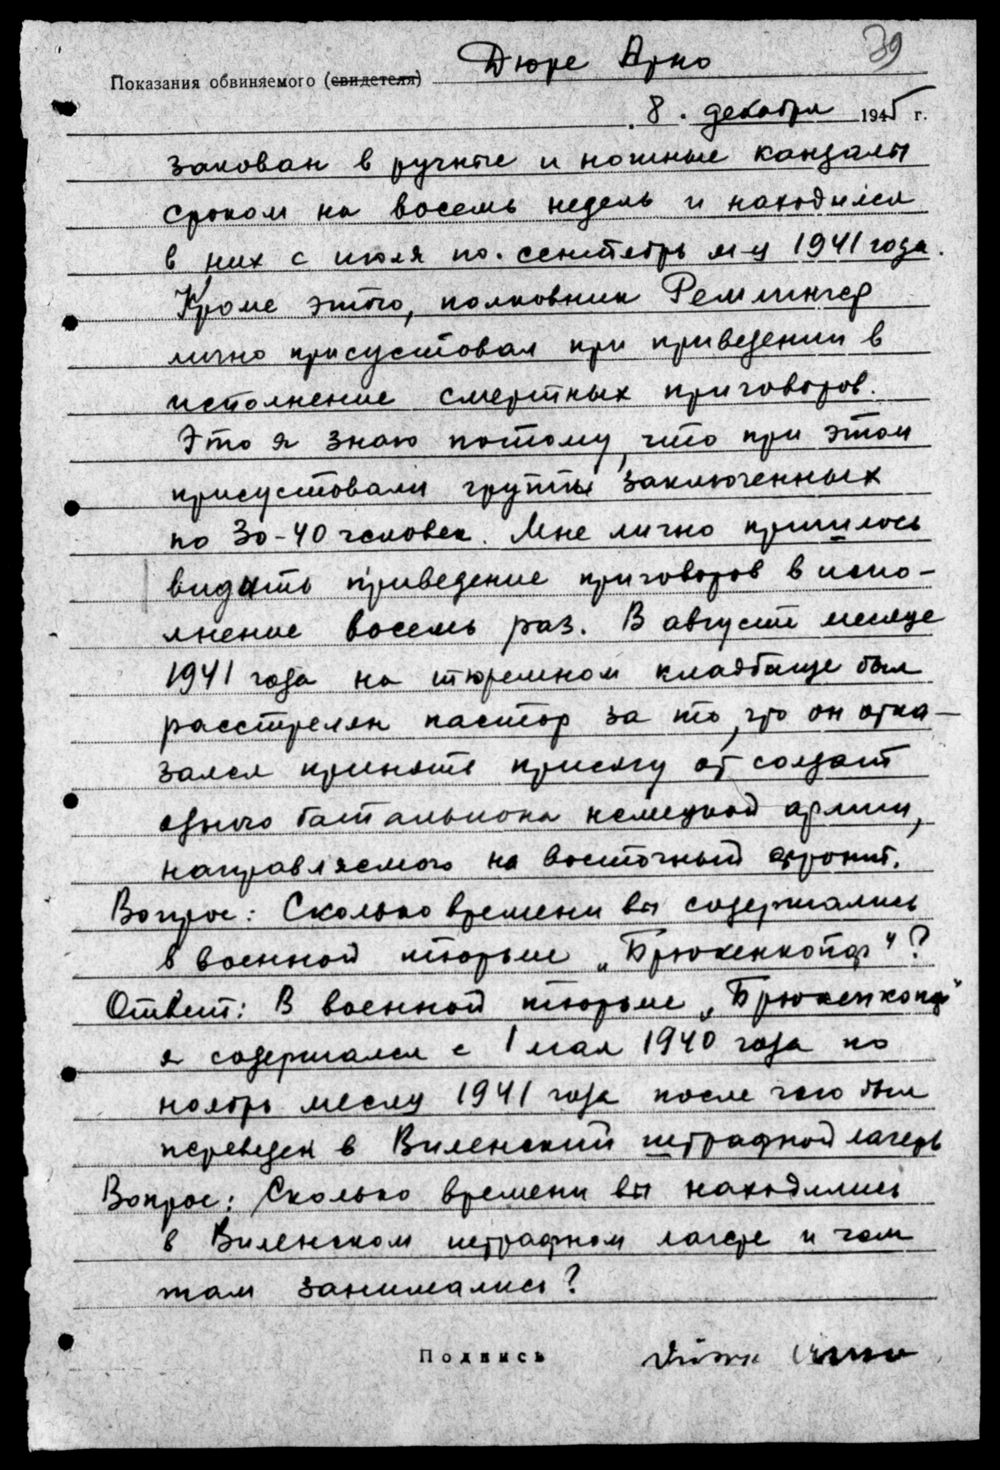 39
Показания обвиняемого (свидетеля) Дюре Арно
8. декабря 1945 г.
закован в ручные и ножные кандалы
сроком на восемь недель и находился
в них с июля по. сентябрь м-ц 1941 года.
Кроме этого, полковник Ремлингер
лично присуствовал при приведении в
исполнение смертных приговоров.
Это я знаю потому, что при этом
присуствовали группы заключенных
по 30-40 человек. Мне лично пришлось
видить приведение приговоров в испо-
лнение восемь раз. В августе месяце
1941 года на тюремном кладбище был
расстрелян пастор за то, что он отка-
зался принять присягу от солдат
одного батальиона немецкой армии,
направляемого на восточный фронт.
Вопрос: Сколько времени вы содержались
в военной тюрьме „Брюкенкопф"?
Ответ: В военной тюрьме „Брюкенкопф"
я содержался с 1 мая 1940 года по
ноябрь месяц 1941 года после чего был
переведен в Виленский штрафной лагерь
Вопрос: Сколько времени вы находились
в Виленском штрафном лагере и чем
там занимались?
Подпись